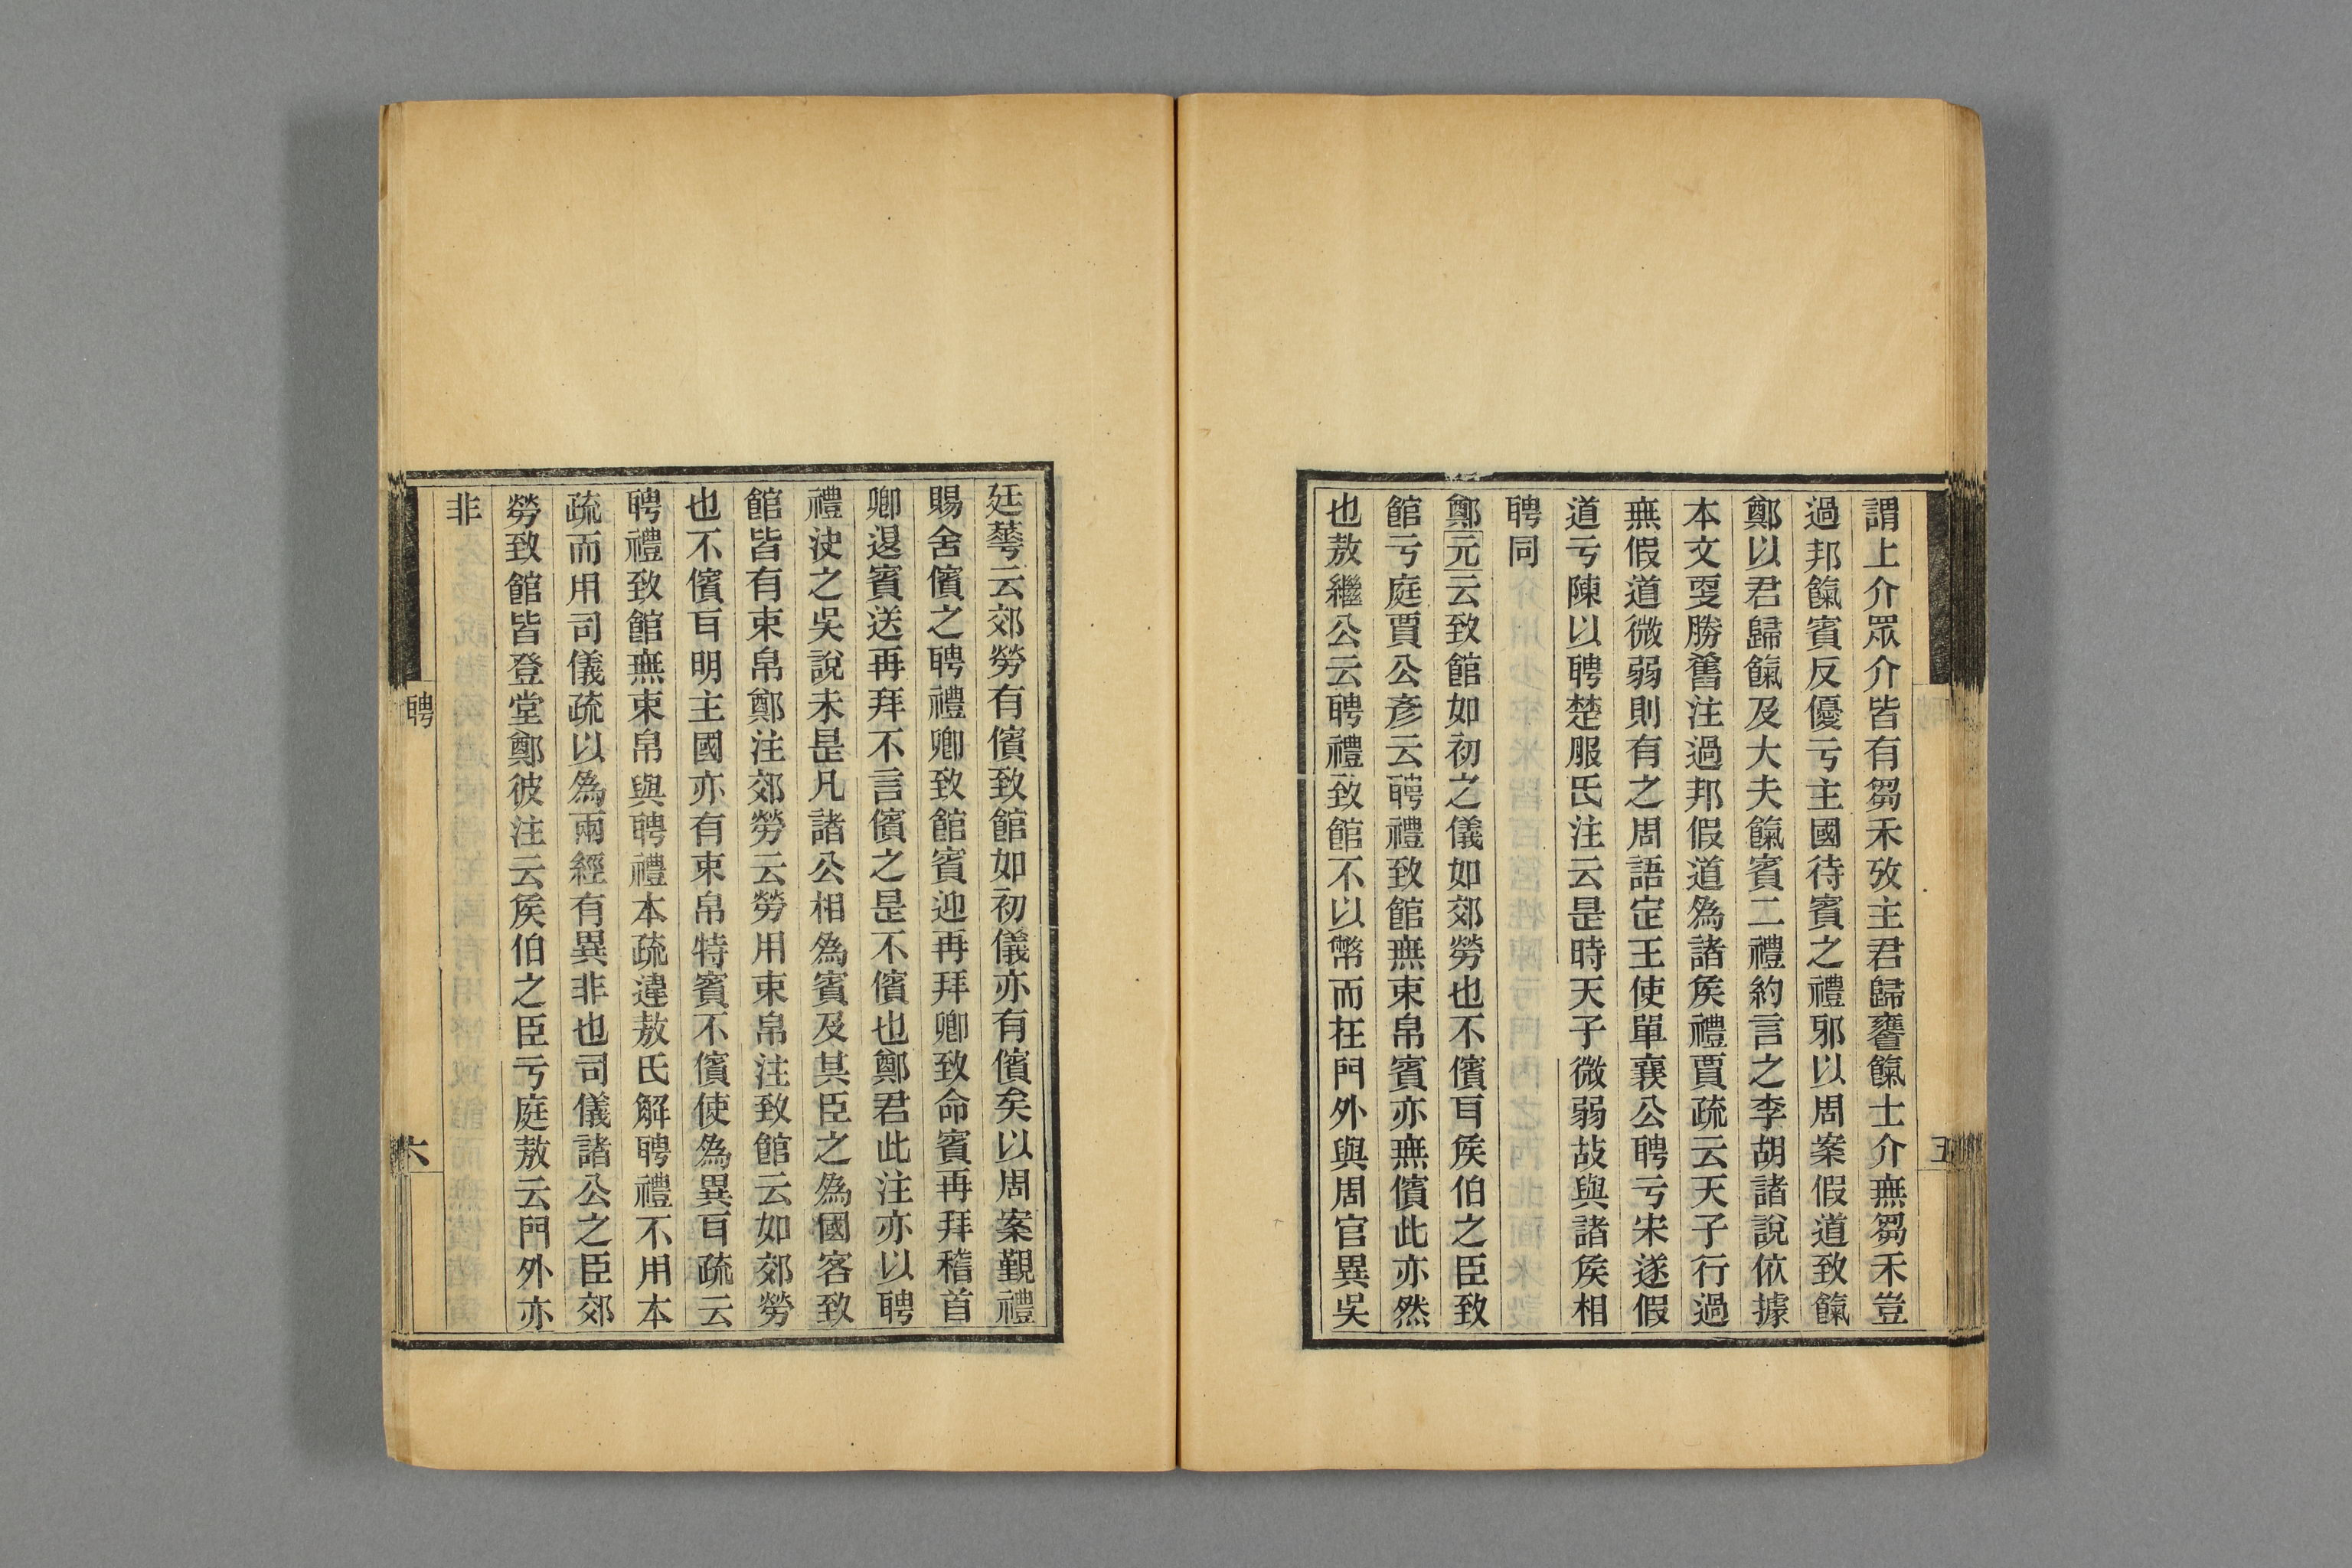 謂上介眾介皆有芻禾攷主君歸饔餼士介無芻禾豈
過邦餼賓反優亏主國待賓之禮邪以周案假道致餼
鄭以君歸餼及大夫餼賓二禮約言之李胡諸說依據
本文㪅勝舊注過邦假道為諸矦禮賈疏云天子行過
無假道微弱則有之周語定王使單襄公聘亏宋遂假
道亏陳以聘楚服氏注云是時天子微弱故與諸矦相
聘同
鄭元云致館如初之儀如郊勞也不儐耳矦伯之臣致
館亏庭賈公彥云聘禮致館無束帛賓亦無儐此亦然
也敖繼公云聘禮致館不以幣而在門外與周官異吳
五
廷華云郊勞有儐致館如初儀亦有儐矣以周案覲禮
賜舍儐之聘禮卿致館賓迎再拜卿致命賓再拜稽首
卿退賓送再拜不言儐之是不儐也鄭君此注亦以聘
禮決之吳說未是凡諸公相為賓及其臣之為國客致
館皆有束帛鄭注郊勞云勞用束帛注致館云如郊勞
也不儐耳明主國亦有束帛特賓不儐使為異耳疏云
聘禮致館無束帛與聘禮本疏違敖氏解聘禮不用本
疏而用司儀疏以為兩經有異非也司儀諸公之臣郊
勞致館皆登堂鄭彼注云矦伯之臣亏庭敖云門外亦
非
聘
六